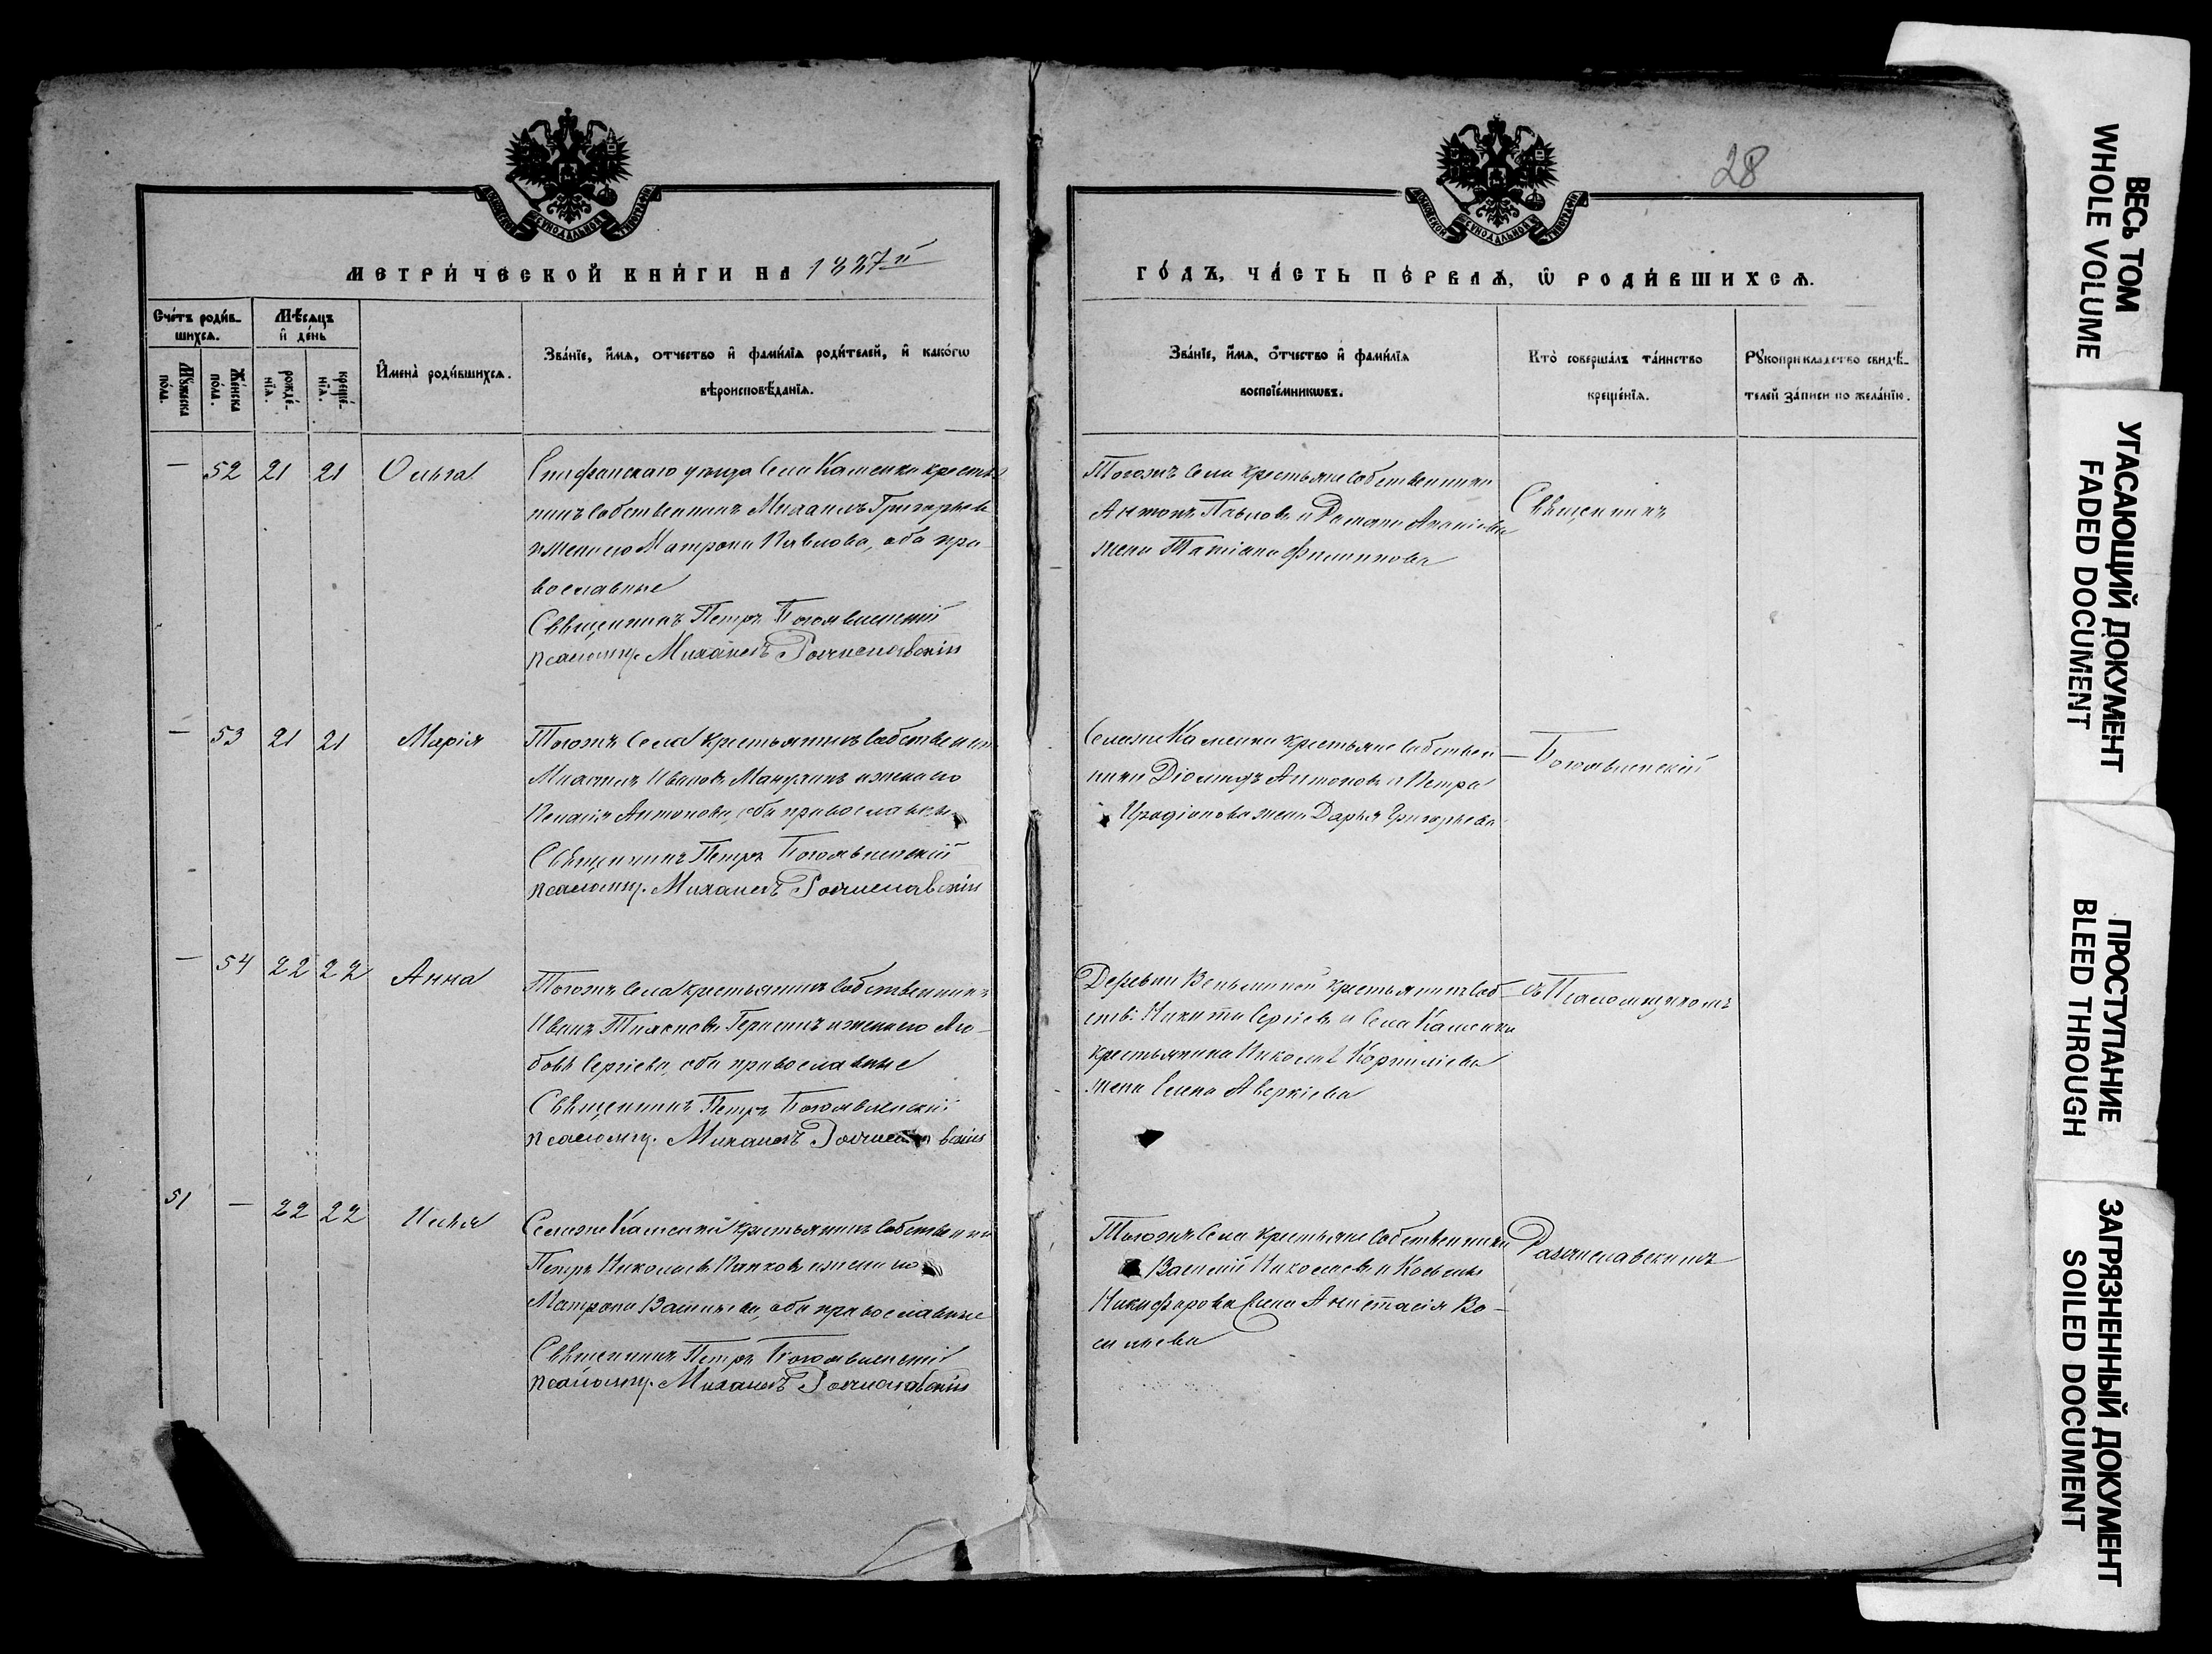 28
МЕТРИ́ЧЕСКОЙ КНИ́ГИ НА 1887й
ГО́ДЪ, ЧА́СТЬ ПЕ́РВАѦ, Ѿ РОДИ́ВШИХСѦ.
Сче́тъ роди́в-
шихсѧ.
Мѣ́сѧцъ
и҆ де́нь
Мꙋ́жеска по́ла.
Же́нска по́ла.
рожде́-
нїѧ.
креще́-
нїѧ.
И҆мена̀ роди́вшихсѧ.
Зва́нїе, и҆́мѧ, ѻ҆́тчество и҆ фами́лїѧ роди́телей, и҆ како́гѡ
вѣроисповѣ́данїѧ.
Зва́нїе, и҆́мѧ, ѻ҆́тчество и҆ фами́лїѧ
воспрїе́мникѡвъ.
Кто̀ соверша́лъ та́инство
креще́нїѧ.
Рꙋкоприкладство свидѣ́-
телей за́писи по жела́нїю.
— 52 21 21 Ольга
Епифанскаго уѣзда Села Каменки крестья
нинъ собственникъ Михаилъ Григорьевъ
и жена его Матрона Павлова, оба пра
вославные
Священникъ Петръ Богоявленскій
псаломщ. Михаилъ
Тогожъ Села крестьяне собственники
Антонъ Павловъ и Романа Ананіева
жена Татіана Филиппова
Священникъ
— 53 21 21 Марія
Тогожъ Села крестьянинъ собственник
Иванов и жена его
Антонова, оба православные
Священникъ Петръ Богоявленскій
псаломщ. Михаилъ
Селаже Каменки крестьяне собствен
ники Діомидъ Антоновъ и Петра
жена Дарья Григорьева
Богоявленскій
— 54 22 22 Анна
Тогожъ Села крестьянинъ собственникъ
Иванъ и жена его Лю-
бовь Сергіева, оба православные
Священникъ Петръ Богоявленскій
псаломщ. Михаилъ
Деревни крестьянинъ соб-
ств. Никита Сергіевъ и Села Каменки
крестьянина Николая Корниліева
жена Елена Аверкіева
съ Псаломщикомъ
51 — 22 22 Илья
Селаже Каменки крестьянинъ собственник
Петръ Николаевъ и жена его
Матрона оба православные
Священникъ Петръ Богоявленскій
псаломщ. Михаилъ
Тогожъ Села крестьяне собственники
Василій Николаевъ и Косьмы
Никифорова жена Анастасія Ва-
сильева
ВЕСЬ ТОМ
WHOLE VOLUME
УГАСАЮЩИЙ ДОКУМЕНТ
FADED DOCUMENT
ПРОСТУПАНИЕ
BLEED THROUGH
ЗАГРЯЗНЕННЫЙ ДОКУМЕНТ
SOILED DOCUMENT